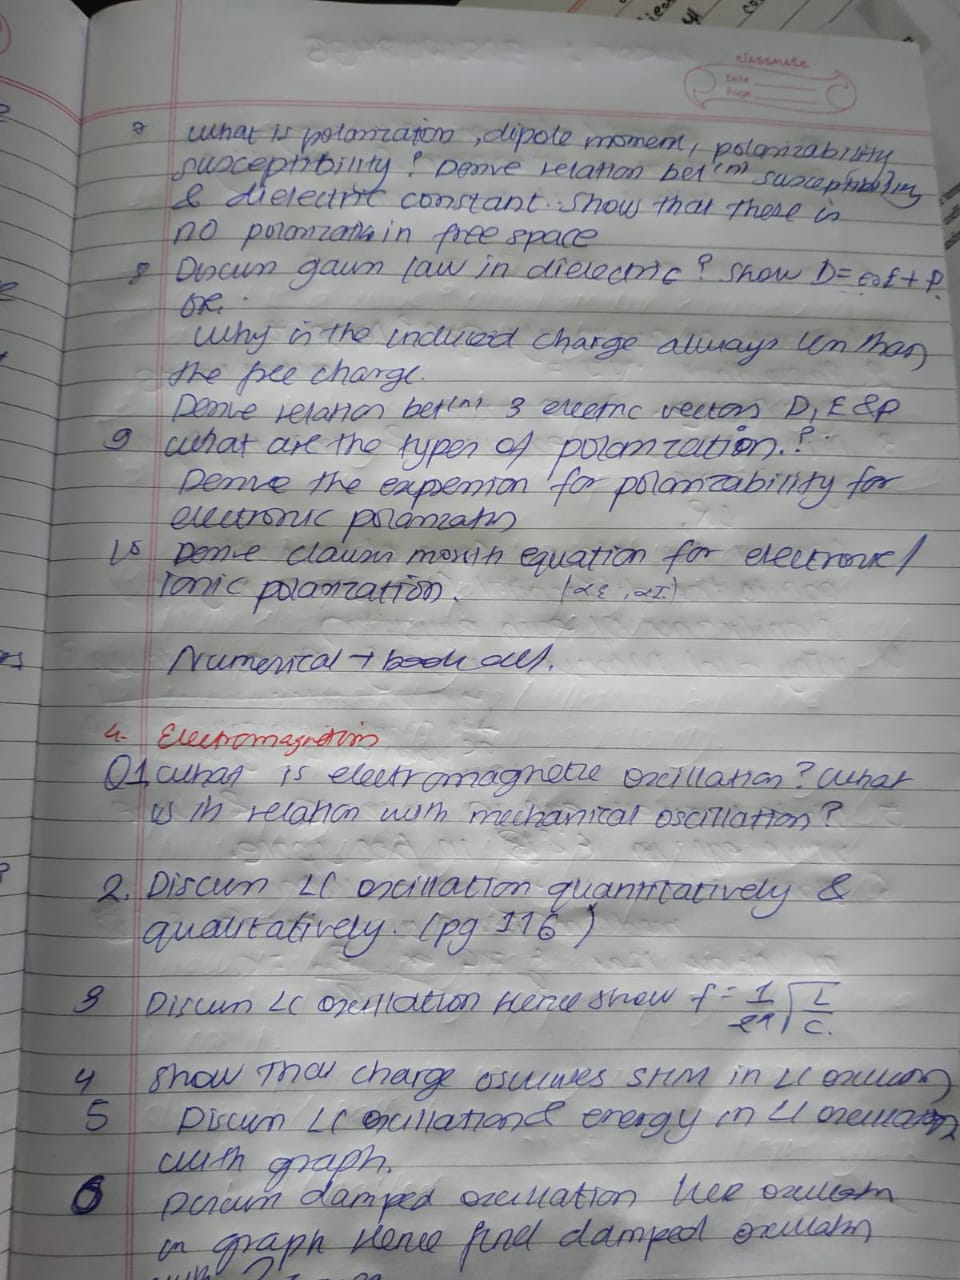 classmate
Date
Page
7 What is polarization, dipole moment, polarizability
susceptibility? Derve relation bet(n) susceptibility
& dielectric constant. Show that there is
no polarization in free space
8 Discuss gauss law in dielectric? Show D= ε0E+P.
OR.
Why is the induced charge always less than
the free charge.
Derive relation bet(n) 3 electric vectors D, E & P
9 What are the types of polarization.?
Derive the expression for polarizability for
electronic polarization
10 Derive claussius mossoti equation for electronic/
ionic polarization. (αE, αI)
Numerical → book all.
4. Electromagnetism
Q1 What is electromagnetic oscillation? What
is its relation with mechanical oscillation?
2. Discuss LC oscillation quantitatively &
qualitatively. (pg 116)
3 Discuss LC oscillation Hence show f = 1/2π √L/C.
4 Show that charge oscillates SHM in LC oscillation
5 Discuss LC oscillation & energy in LC oscillation
with graph.
6 Discuss damped oscillation LCR oscillation
in graph Hence find damped oscillation